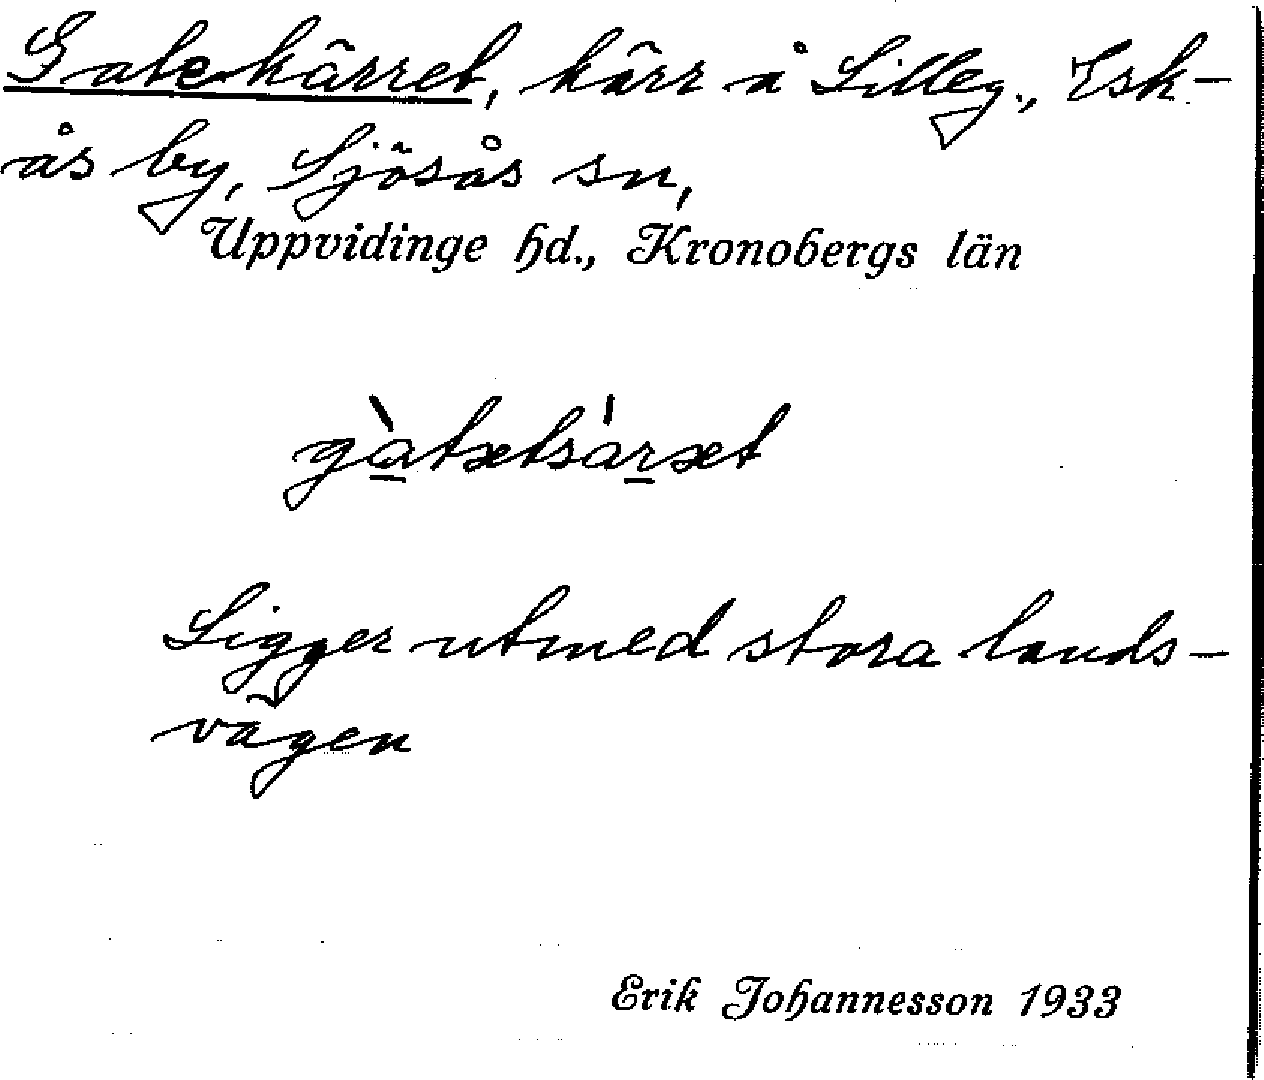 Gatekärret, kärr å Lilleg., Esk-
ås by, Sjösås sn,
Uppvidinge hd., Kronobergs län
gàtætsáræt
Ligger utmed stora lands-
vägen
Erik Johannesson 1933